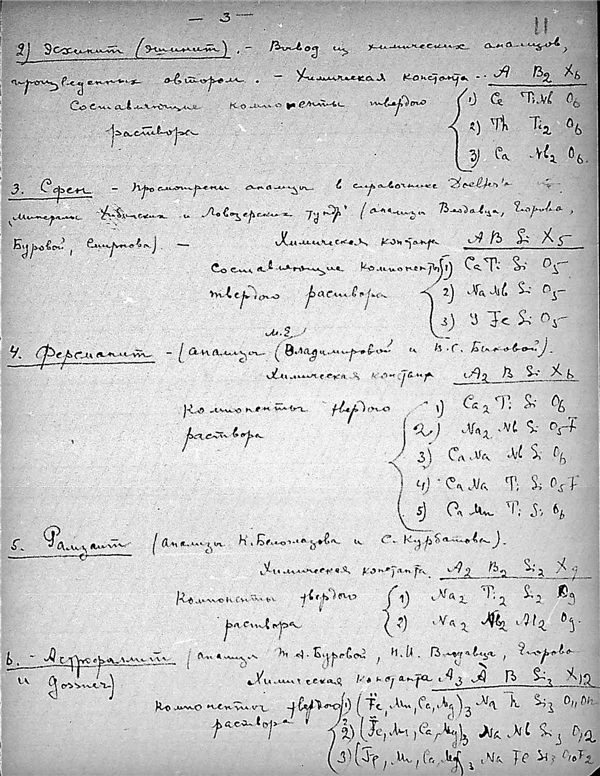 — 3 —
11
2) Эсхинит (эшинит). – Вывод из химических анализов,
произведенных автором. – Химическая константа – A B2 X6
Составляющие компоненты твердого
раствора
1) Ce TiNb O6
2) Th Ti2 O6
3) Ca Nb2 O6.
3. Сфен – Просмотрены анализы в справочнике Doelter'а
„Минералы Хибинских и Ловозерских тундр" (анализы Влодавца, Егорова,
Буровой, Смирнова). – Химическая константа A B Si X5
Составляющие компоненты
твердого раствора
1) Ca Ti Si O5
2) Na Nb Si O5
3) Y Fe Si O5
4. Ферсманит – (анализы М.Е. Владимировой и В.С. Быковой).
Химическая константа A2 B Si X6
Компоненты твердого
раствора
1) Ca2 Ti Si O6
2) Na2 Nb Si O5F
3) Ca Na Nb Si O6
4) Ca Na Ti Si O5F
5) Ca Mn Ti Si O6
5. Рамзаит (анализы К. Белоглазова и С. Курбатова).
Химическая константа A2 B2 Si2 X9
Компоненты твердого
раствора
1) Na2 Ti2 Si2 O9
2) Na2 Nb2 Al2 O9.
6. – Астрофиллит (анализы Т.А. Буровой, Н.И. Влодавца, Егорова
и Gossner) Химическая константа A3 A B Si3 X12
Компоненты твердого
раствора
1) (Fe, Mn, Ca, Mg)3 Na Ti Si3 O11OH
2) (Fe, Mn, Ca, Mg)3 Na Nb Si3 O12
3) (Fe, Mn, Ca, Mg)3 Na Fe Si3 O10F2